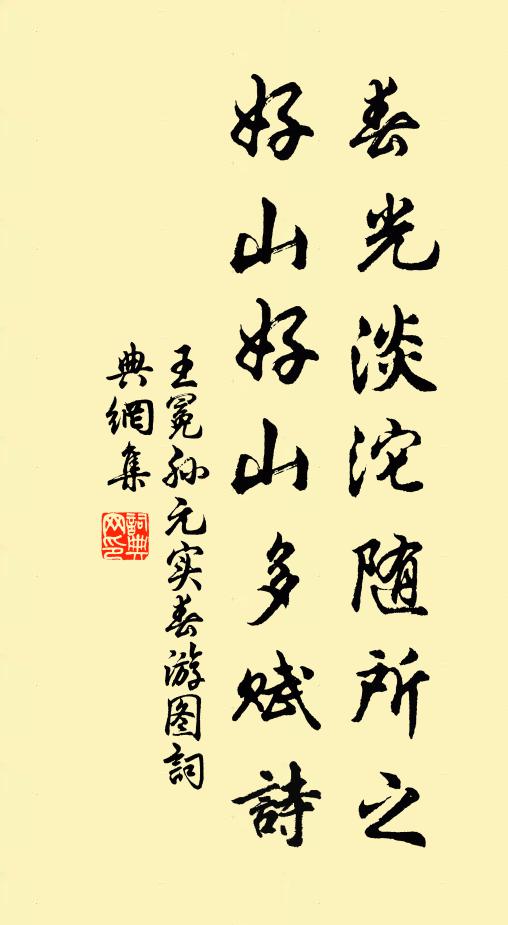 春光淡沱随所之
好山好山多赋詩
王冕孙元实春游图詞
典網集
詞典網印